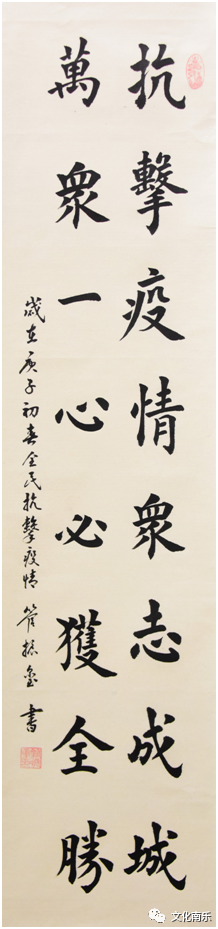 抗擊疫情衆志成城
萬衆一心必獲全勝
歲在庚子初春全民抗擊疫情 管振書
文化南乐